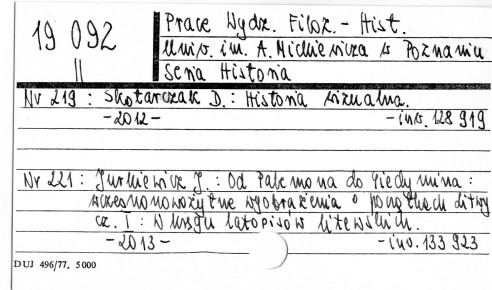 19 092
II
Prace Wydz. Filoz. - Hist.
Uniw. im. A. Mickiewicza w Poznaniu
Seria Historia
Nr 219 : Skotarczak D. : Historia wizualna.
- 2012 -
- inw. 128 919
Nr 221 : Jurkiewicz J. : Od Palemona do Giedymina :
wczesnonowożytne wyobrażenia o początkach Litwy
cz. I : W kręgu latopisów litewskich.
- 2013 -
- inw. 133 923
DUJ 496/77. 5000